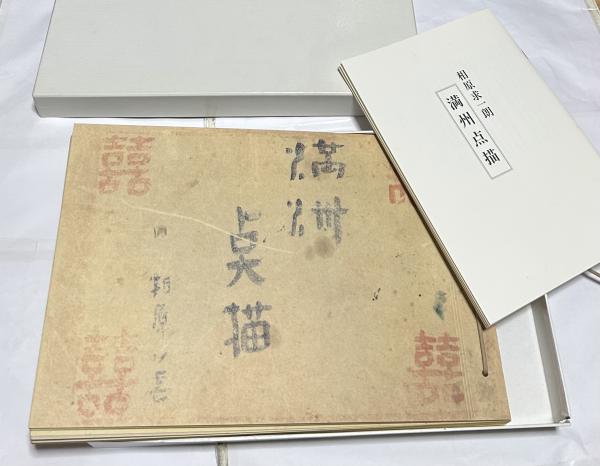 相原求一朗
満州点描
満洲
点描
囍 囍
囍 囍 囍